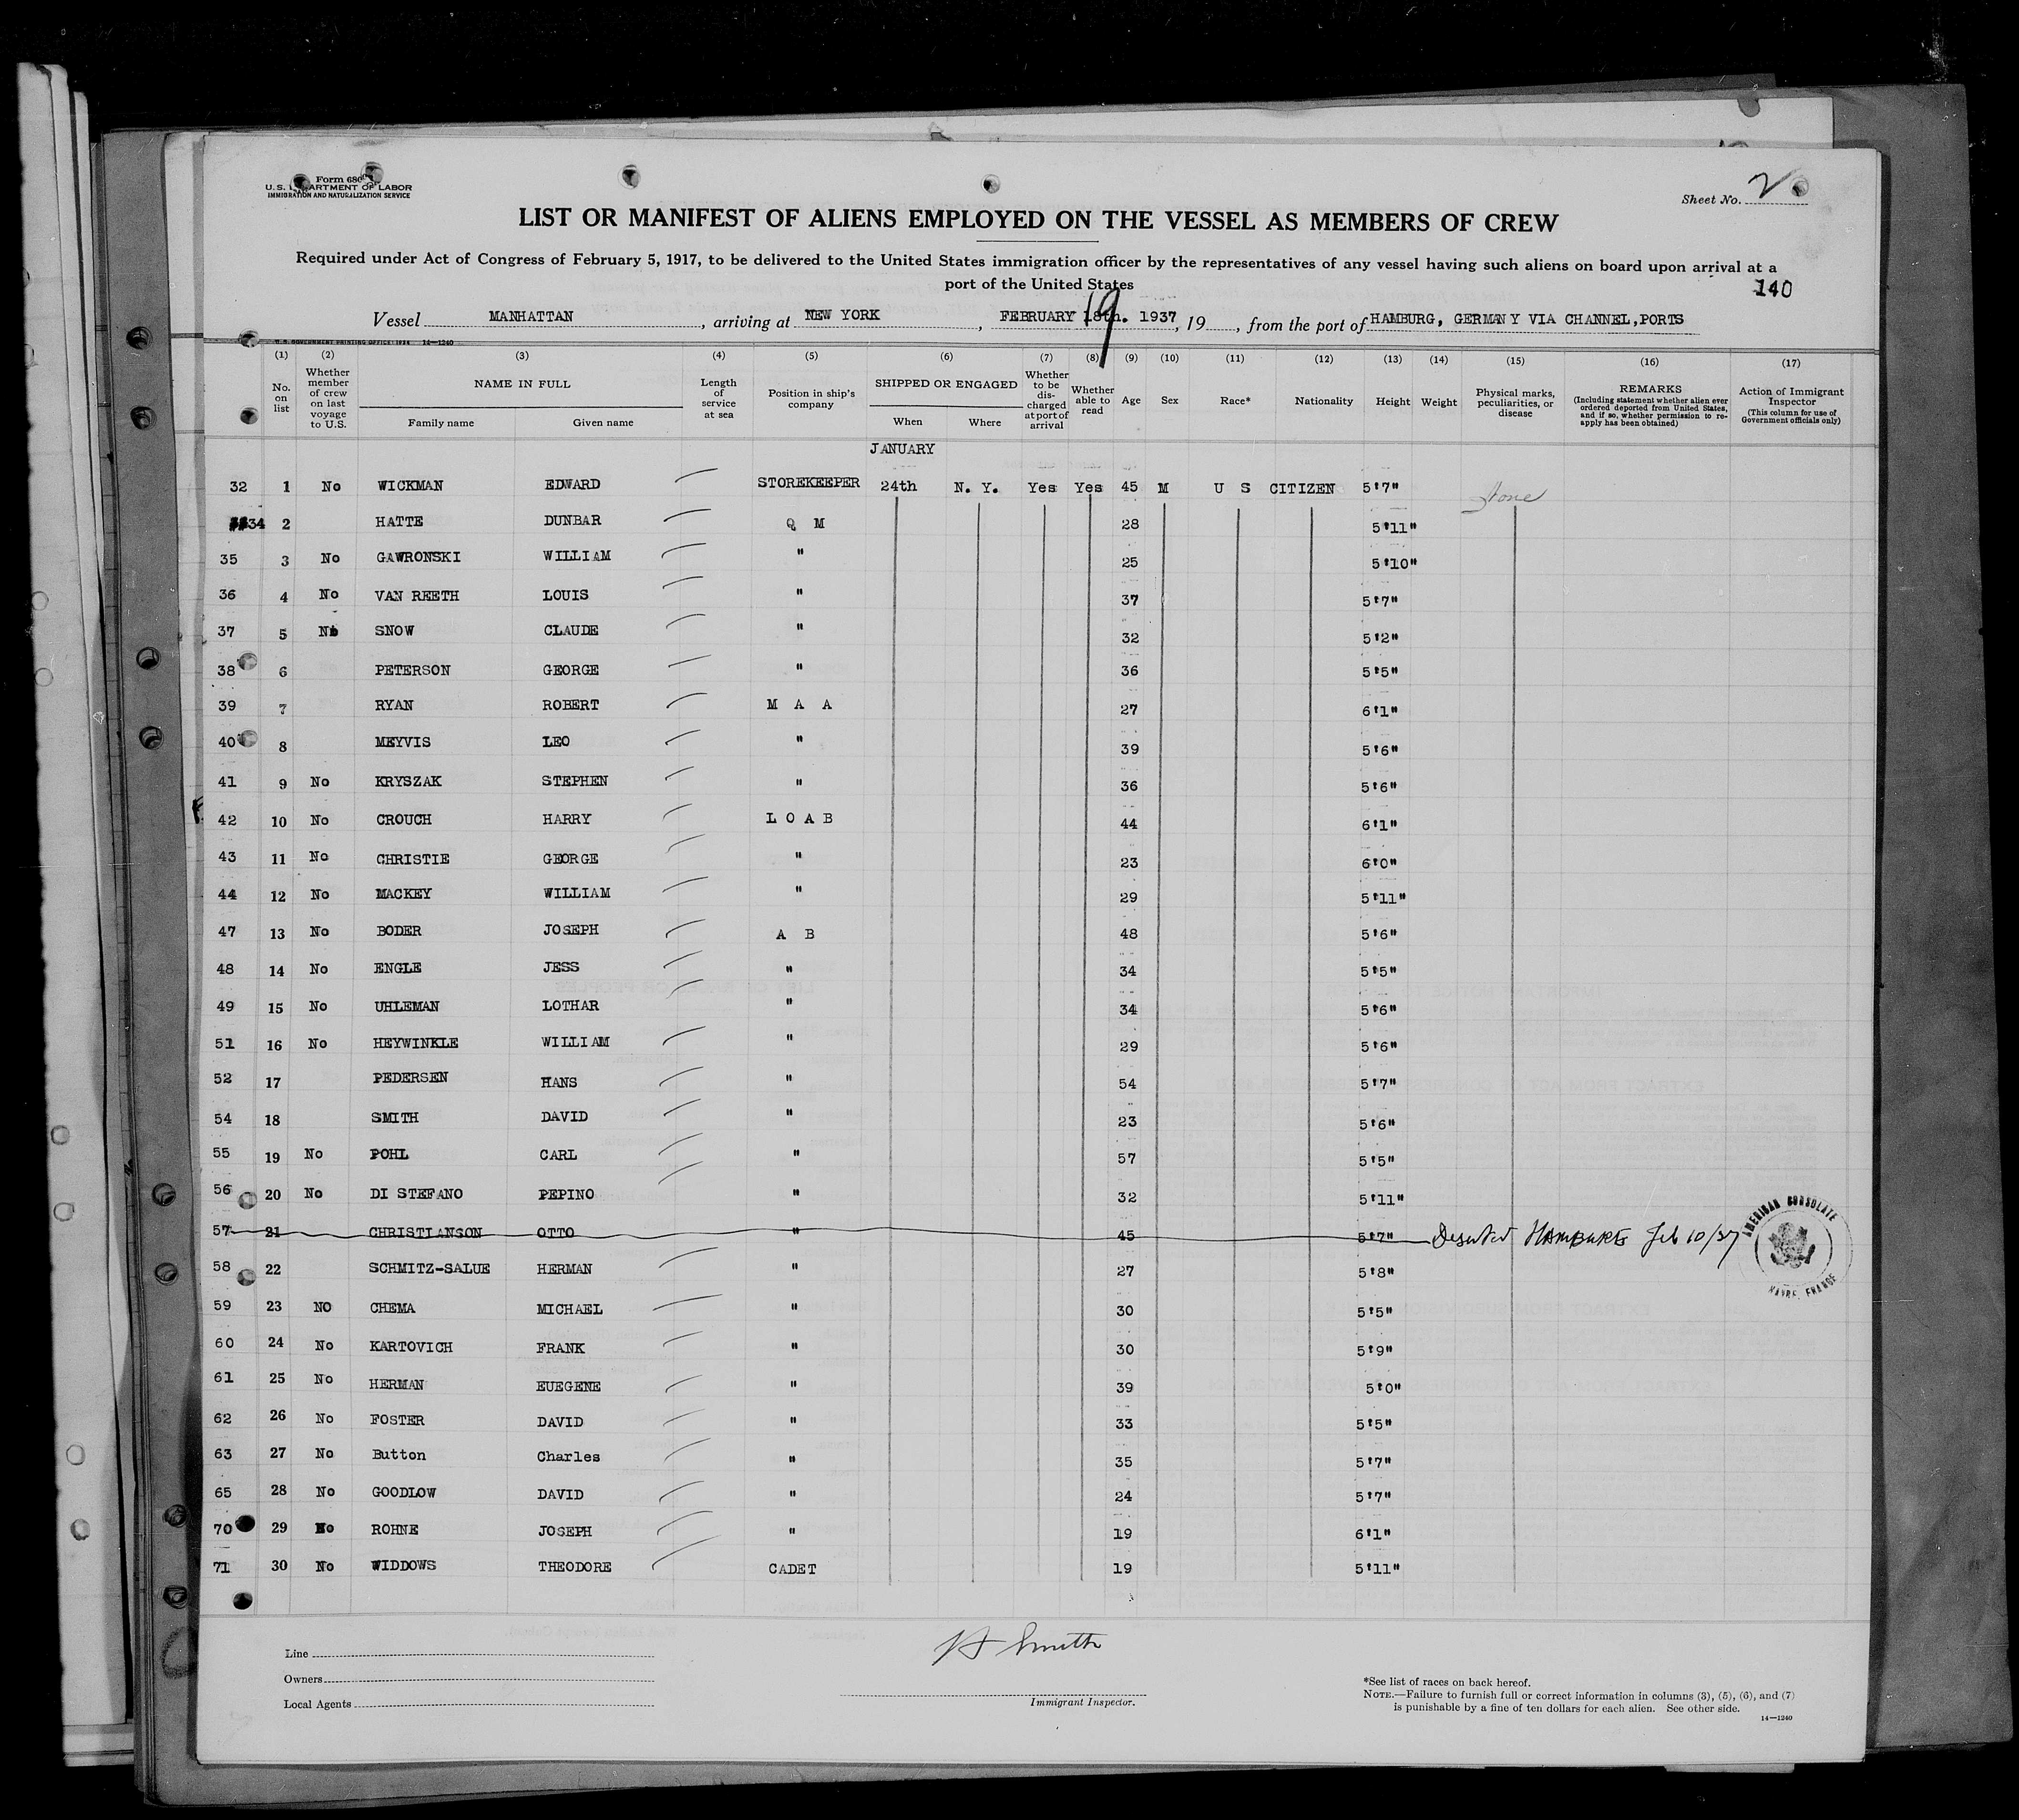 Form 680
U. S. DEPARTMENT OF LABOR
IMMIGRATION AND NATURALIZATION SERVICE
Sheet No. 2
LIST OR MANIFEST OF ALIENS EMPLOYED ON THE VESSEL AS MEMBERS OF CREW
Required under Act of Congress of February 5, 1917, to be delivered to the United States immigration officer by the representatives of any vessel having such aliens on board upon arrival at a
port of the United States
140
Vessel MANHATTAN, arriving at NEW YORK, FEBRUARY 18th. 1937, 19, from the port of HAMBURG, GERMANY VIA CHANNEL,PORTS
19
U. S. GOVERNMENT PRINTING OFFICE: 1934 14—1240
(1) (2) (3) (4) (5) (6) (7) (8) (9) (10) (11) (12) (13) (14) (15) (16) (17)
No. on list
Whether member of crew on last voyage to U.S.
NAME IN FULL
Family name Given name
Length of service at sea
Position in ship's company
SHIPPED OR ENGAGED
When Where
Whether to be discharged at port of arrival
Whether able to read
Age
Sex
Race*
Nationality
Height
Weight
Physical marks, peculiarities, or disease
REMARKS
(Including statement whether alien ever ordered deported from United States, and if so, whether permission to re-apply has been obtained)
Action of Immigrant Inspector
(This column for use of Government officials only)
JANUARY
32 1 No WICKMAN EDWARD STOREKEEPER 24th N. Y. Yes Yes 45 M U S CITIZEN 5'7" None
34 2 HATTE DUNBAR Q M 28 5'11"
35 3 No GAWRONSKI WILLIAM " 25 5'10"
36 4 No VAN REETH LOUIS " 37 5'7"
37 5 No SNOW CLAUDE " 32 5'2"
38 6 PETERSON GEORGE " 36 5'5"
39 7 RYAN ROBERT M A A 27 6'1"
40 8 MEYVIS LEO " 39 5'6"
41 9 No KRYSZAK STEPHEN " 36 5'6"
42 10 No CROUCH HARRY L O A B 44 6'1"
43 11 No CHRISTIE GEORGE " 23 6'0"
44 12 No MACKEY WILLIAM " 29 5'11"
47 13 No BODER JOSEPH A B 48 5'6"
48 14 No ENGLE JESS " 34 5'5"
49 15 No UHLEMAN LOTHAR " 34 5'6"
51 16 No HEYWINKLE WILLIAM " 29 5'6"
52 17 PEDERSEN HANS " 54 5'7"
54 18 SMITH DAVID " 23 5'6"
55 19 No POHL CARL " 57 5'5"
56 20 No DI STEFANO PEPINO " 32 5'11"
57 21 CHRISTIANSON OTTO " 45 5'7" Deserted HAMBURG Feb 10/37
AMERICAN CONSULATE
HAVRE, FRANCE
58 22 SCHMITZ-SALUE HERMAN " 27 5'8"
59 23 NO CHEMA MICHAEL " 30 5'5"
60 24 No KARTOVICH FRANK " 30 5'9"
61 25 No HERMAN EUEGENE " 39 5'0"
62 26 No FOSTER DAVID " 33 5'5"
63 27 No Button Charles " 35 5'7"
65 28 No GOODLOW DAVID " 24 5'7"
70 29 No ROHNE JOSEPH " 19 6'1"
71 30 No WIDDOWS THEODORE CADET 19 5'11"
Line
Owners
Local Agents
H Smith
Immigrant Inspector.
*See list of races on back hereof.
NOTE.—Failure to furnish full or correct information in columns (3), (5), (6), and (7)
is punishable by a fine of ten dollars for each alien. See other side.
14—1240